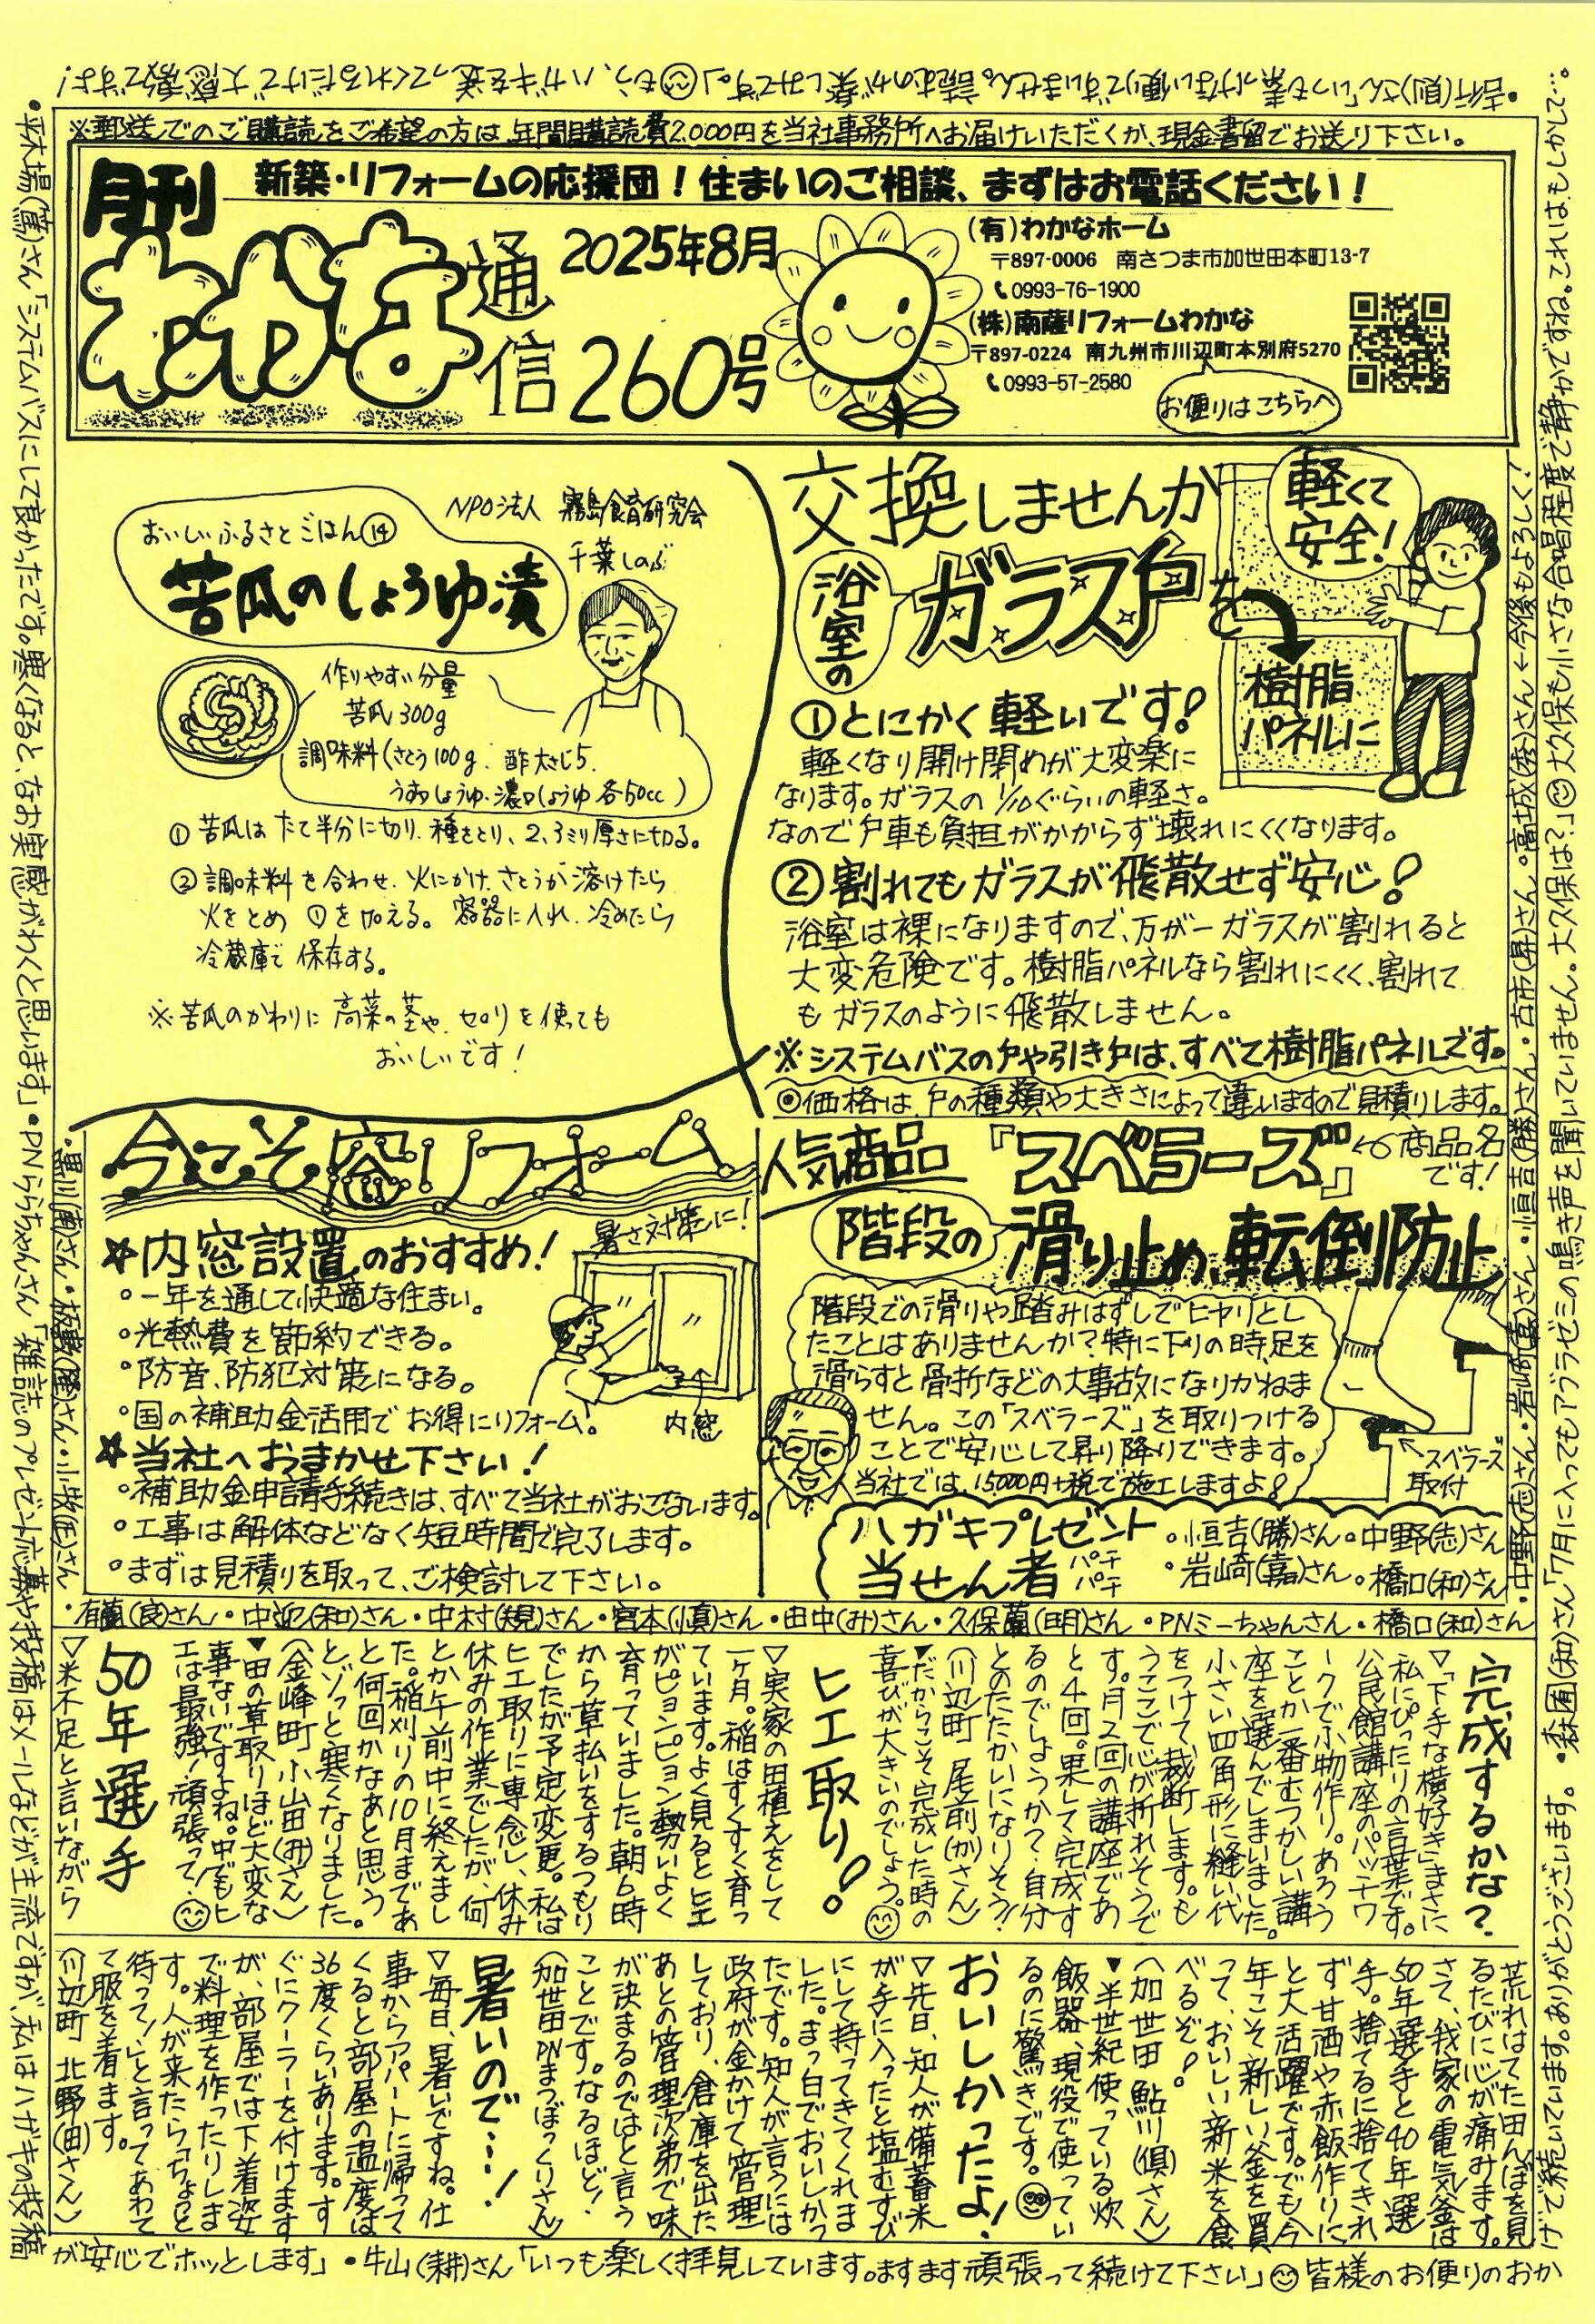 ※郵送でのご購読をご希望の方は、年間購読費2,000円を当社事務所へお届けいただくか、現金書留でお送り下さい。
月刊
わかな
通信
新築・リフォームの応援団！住まいのご相談、まずはお電話ください！
2025年8月
260号
(有)わかなホーム
〒897-0006 南さつま市加世田本町13-7
0993-76-1900
(株)南薩リフォームわかな
〒897-0224 南九州市川辺町本別府5270
0993-57-2580
お便りはこちらへ
おいしいふるさとごはん⑭
苦瓜のしょうゆ漬
NPO法人 霧島食育研究会
千葉しのぶ
作りやすい分量
苦瓜300g
調味料(さとう100g、酢大さじ5、
うす口しょうゆ・濃口しょうゆ各50cc)
① 苦瓜はたて半分に切り、種をとり、2、3ミリ厚さに切る。
② 調味料を合わせ、火にかけ、さとうが溶けたら
火をとめ ①を加える。容器に入れ、冷めたら
冷蔵庫で保存する。
※苦瓜のかわりに高菜の茎や、セロリを使っても
おいしいです！
交換しませんか
浴室の
ガラス戸を
樹脂
パネルに
軽くて
安全！
①とにかく軽いです！
軽くなり開け閉めが大変楽に
なります。ガラスの1/10ぐらいの軽さ。
なので戸車も負担がかからず壊れにくくなります。
②割れてもガラスが飛散せず安心！
浴室は裸になりますので、万が一ガラスが割れると
大変危険です。樹脂パネルなら割れにくく、割れて
もガラスのように飛散しません。
※システムバスの戸や引き戸は、すべて樹脂パネルです。
◎価格は、戸の種類や大きさによって違いますので見積りします。
今こそ窓リフォーム
暑さ対策に！
☆内窓設置のおすすめ！
・一年を通して快適な住まい。
・光熱費を節約できる。
・防音、防犯対策になる。
・国の補助金活用でお得にリフォーム！
内窓
☆当社へおまかせ下さい！
・補助金申請手続きは、すべて当社がおこないます。
・工事は解体などなく短時間で完了します。
・まずは見積りを取って、ご検討して下さい。
人気商品『スベラーズ』
商品名
です！
階段の
滑り止め、転倒防止
階段での滑りや踏みはずしでヒヤリとし
たことはありませんか？特に下りの時、足を
滑らすと骨折などの大事故になりかねま
せん。この「スベラーズ」を取りつける
ことで安心して昇り降りできます。
当社では、15,000円+税で施工しますよ！
スベラーズ
取付
ハガキプレゼント
当せん者
パチ
パチ
・恒吉(勝)さん・中野(志)さん
・岩崎(嘉)さん・橋口(和)さん
・有薗(良)さん・中迎(和)さん・中村(規)さん・宮本(慎)さん・田中(み)さん・久保薗(明)さん・PNミーちゃんさん・橋口(和)さん・
中野(志)さん・岩崎(嘉)さん・恒吉(勝)さん・古市(昇)さん・高城(秀)さん←今後もよろしく！
完成するかな？
▽「下手な横好き」まさに
私にぴったりの言葉です。
公民館講座のパッチワ
ークで小物作り。あろう
ことか一番むつかしい講
座を選んでしまいました。
小さい四角形に縫い代
をつけて裁断します。も
うここで心が折れそうで
す。月2回の講座であ
と4回。果して完成す
るのでしょうか？自分
とのたたかいになりそう！
(川辺町 尾前(か)さん)
▼だからこそ完成した時の
喜びが大きいのでしょう。
ヒエ取り！
▽実家の田植えをして
一ヶ月。稲はすくすく育っ
ています。よく見るとヒエ
がピョンピョン勢いよく
育っていました。朝6時
から草払いをするつもり
でしたが予定変更。私は
ヒエ取りに専念し、休み
休みの作業でしたが、何
とか午前中に終えまし
た。稲刈りの10月まであ
と何回かなあと思う
と、ゾっと寒くなりました。
(金峰町 小山田(み)さん)
▼田の草取りほど大変な
事ないですよね。中でもヒ
エは最強！頑張って！
50年選手
▽米不足と言いながら
荒れはてた田んぼを見
るたびに心が痛みます。
さて、我家の電気釜は
50年選手と40年選
手。捨てるに捨てきれ
ず甘酒や赤飯作りに
と大活躍です。でも今
年こそ新しい釜を買
って、おいしい新米を食
べるぞ！
(加世田 鮎川(倶)さん)
▼半世紀使っている炊
飯器、現役で使ってい
るのに驚きです。
おいしかったよ！
▽先日、知人が備蓄米
が手に入ったと塩むすび
にして持ってきてくれま
した。まっ白でおいしかっ
たです。知人が言うには
政府が金かけて管理
しており、倉庫を出た
あとの管理次第で味
が決まるのではと言う
ことです。なるほど！
(加世田PNまつぼっくりさん)
暑いので…！
▽毎日、暑いですね。仕
事からアパートに帰って
くると部屋の温度は
36度くらいあります。す
ぐにクーラーを付けます
が、部屋では下着姿
で料理を作ったりしま
す。人が来たら「ちょっと
待って！」と言ってあわて
て服を着ます。
(川辺町 北野(由)さん)
・森園(和)さん「7月に入ってもアブラゼミの鳴き声を聞いていません。大久保は？」大久保も小さな合唱程度で静かですね。これはもしかして…。
・吉行(則)さん「いつも素っ気ない便りですいません。読むのが楽しみです。」もう、ハガキを送ってくれるだけで大感激ですよ！
・平木場(篤)さん「システムバスにして良かったです。寒くなると、なお実感がわくと思います」・PNららちゃんさん「雑誌のプレゼント応募や投稿はメールなどが主流ですが、私はハガキの投稿
が安心でホッとします」・牛山(耕)さん「いつも楽しく拝見しています。ますます頑張って続けて下さい」皆様のお便りのおか
げで続いています。ありがとうございます。